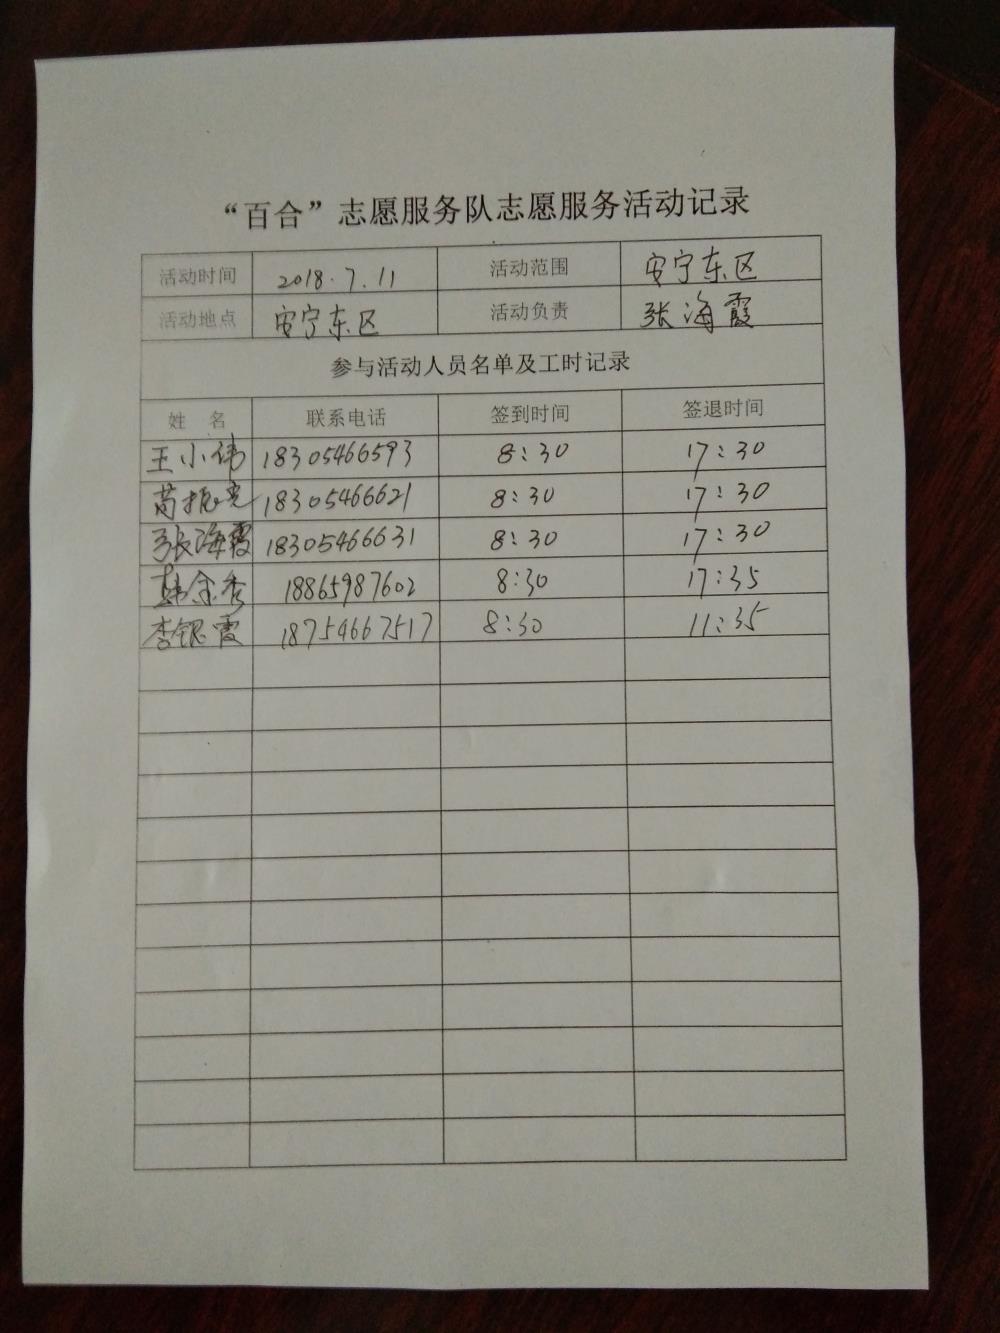 “百合”志愿服务队志愿服务活动记录
活动时间 2018.7.11 活动范围 安宁东区
活动地点 安宁东区 活动负责 张海霞
参与活动人员名单及工时记录
姓 名 联系电话 签到时间 签退时间
王小伟 18305466593 8:30 17:30
苟振亮 18305466621 8:30 17:30
张海霞 18305466631 8:30 17:30
韩金秀 18865987602 8:30 17:35
李银霞 18754667517 8:30 11:35